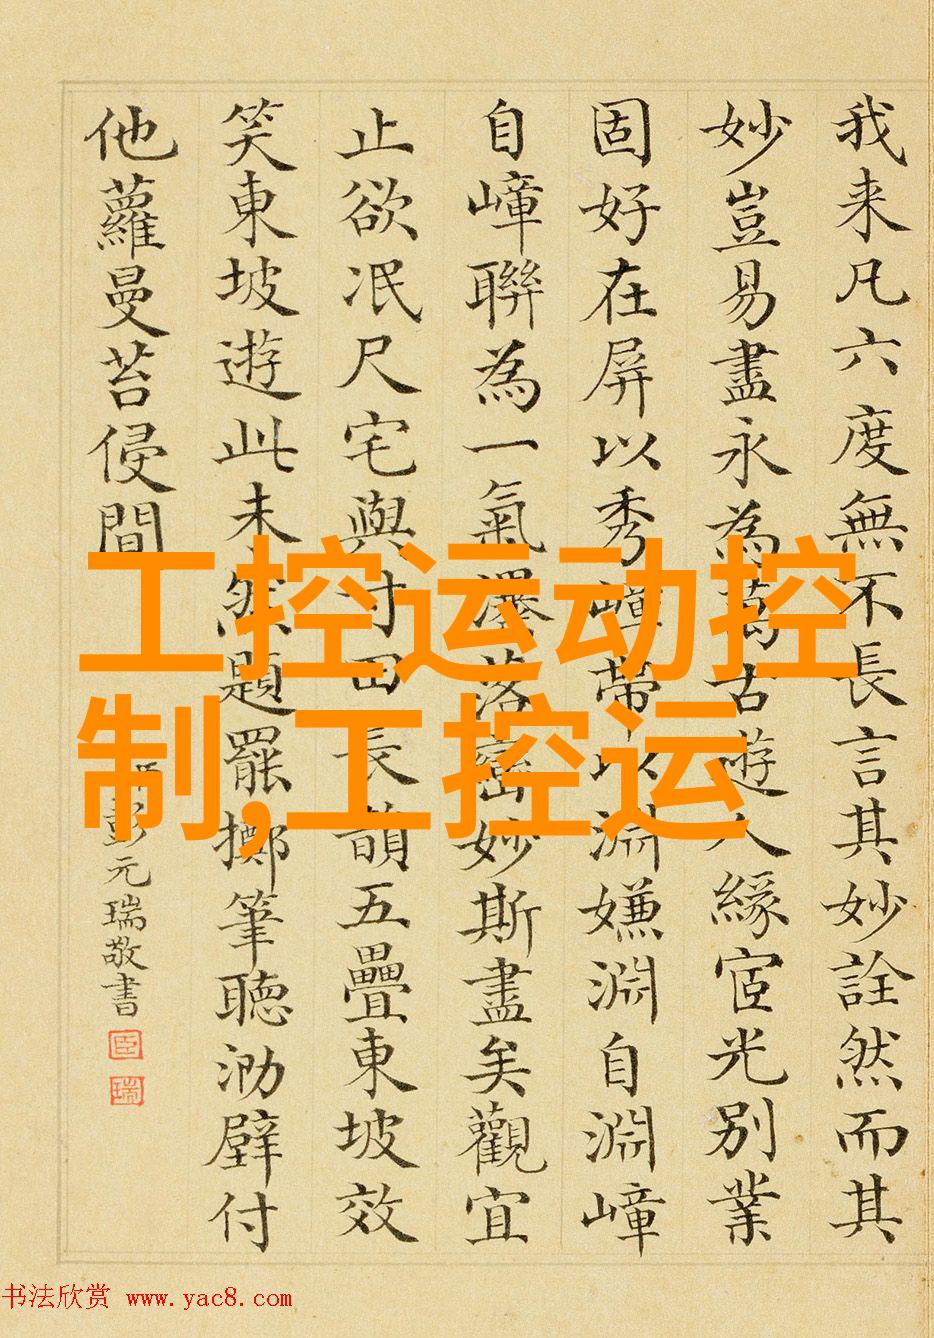 我来凡六度無不長言其妙詮然而其
妙豈易盡永為萬古遊人緣宧光別業
固好在屏以秀嶂帶以淵嫌淵自淵嶂
自嶂聯為一氣瀑落巒妙斯盡矣觀宜
止欲冺尺宅與寸田長韻五疊東坡效
笑東坡遊此未然題罷擲筆聽泐壁付
他蘿曼苔侵間
彭元瑞敬書
臣
瑞
工控运动控
制,工控运
书法欣赏 www.yac8.com